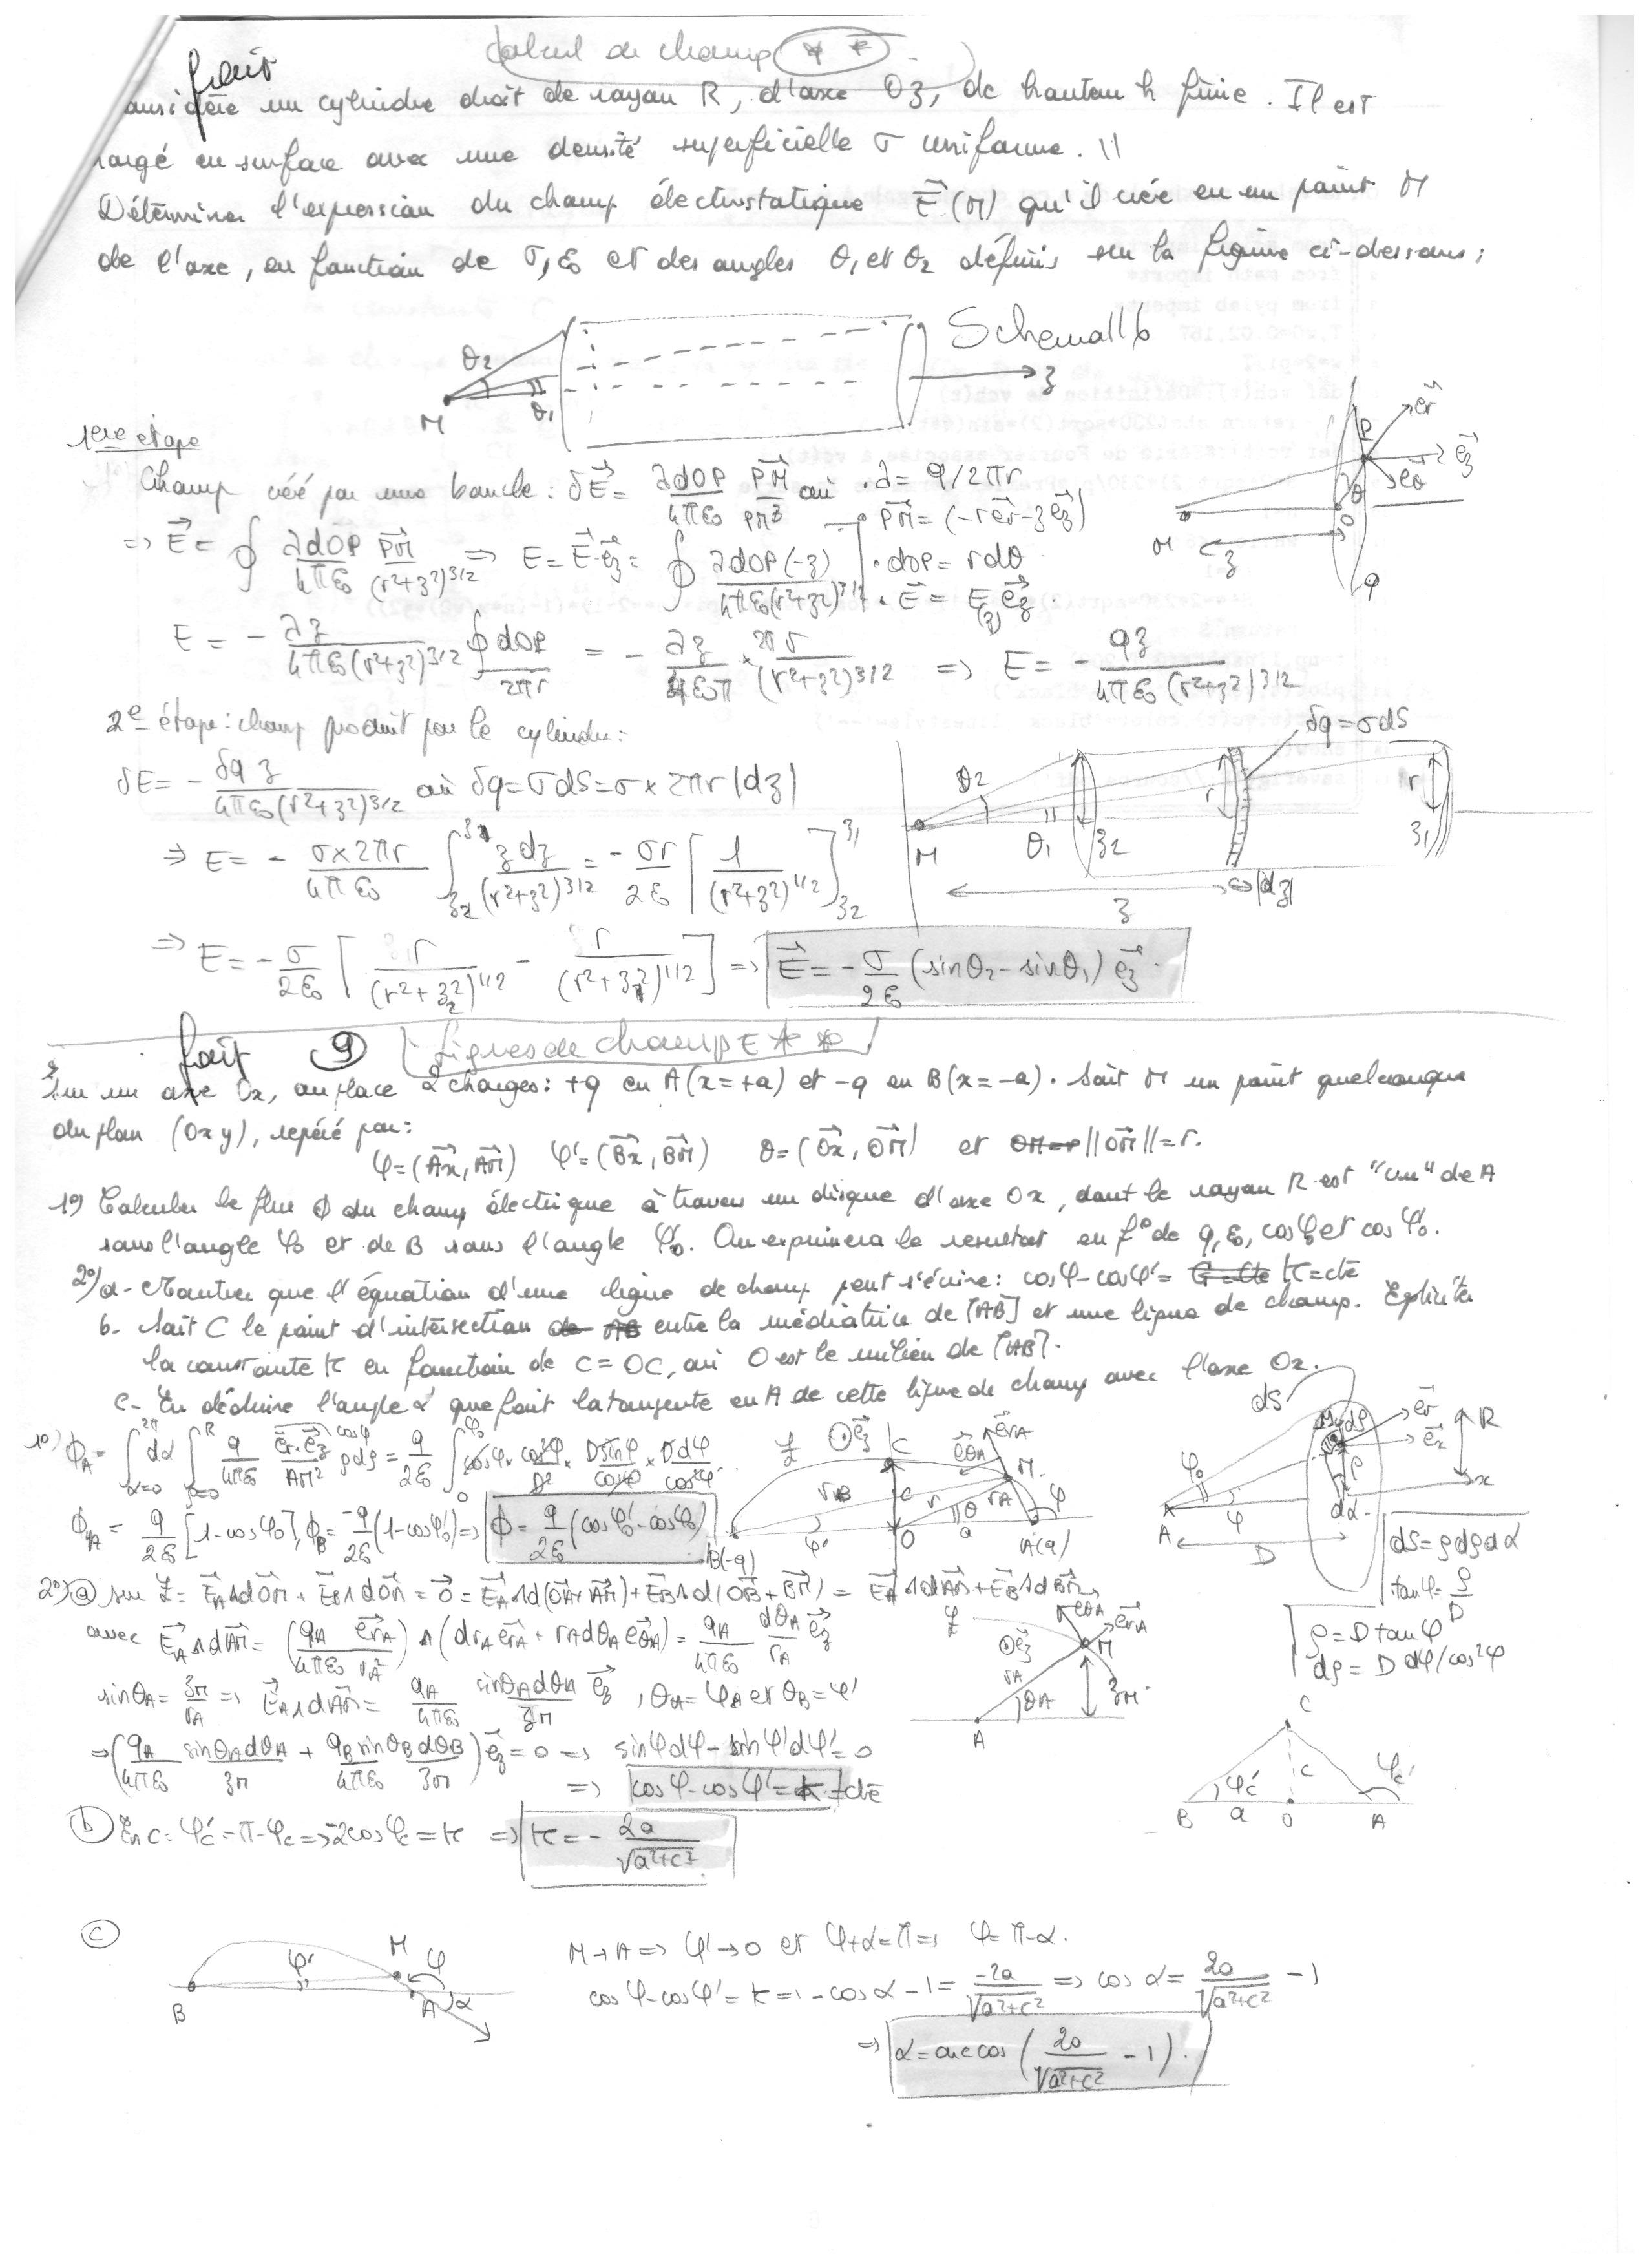 Calcul de champ **
fait
considère un cylindre droit de rayon R, d'axe Oz, de hauteur h finie. Il est
chargé en surface avec une densité superficielle σ uniforme.
Déterminer l'expression du champ électrostatique E⃗(M) qu'il crée en un point M
de l'axe, en fonction de σ, ε₀ et des angles θ₁ et θ₂ définis sur la figure ci-dessous :
θ₂ M θ₁ z
1ère etape
Champ créé par une boucle : δE⃗ = λdOP/4πε₀ PM⃗/PM³ où • λ = q/2πr
• PM⃗ = (-r er⃗ - z ez⃗)
=> E⃗ = ∮ λdOP/4πε₀ PM⃗/(r²+z²)^3/2 => E = E⃗·ez⃗ = ∮ λdOP(-z)/4πε₀(r²+z²)^3/2 • dOP = rdθ
• E⃗ = E(z) ez⃗
E = - λz/4πε₀(r²+z²)^3/2 ∮ dOP = - λz/4ε₀π × 2πr/(r²+z²)^3/2 => E = - qz/4πε₀(r²+z²)^3/2
2πr
P er⃗ ez⃗ eθ⃗ θ O M z q
2e étape : champ produit par le cylindre :
δE = - δq z/4πε₀(r²+z²)^3/2 où δq = σdS = σ × 2πr |dz|
=> E = - σ×2πr/4πε₀ ∫ zdz/(r²+z²)^3/2 = - σr/2ε₀ [1/(r²+z²)^1/2] z₁ z₂
=> E = - σ/2ε₀ [r/(r²+z₂²)^1/2 - r/(r²+z₁²)^1/2] => E⃗ = - σ/2ε₀ (sinθ₂ - sinθ₁) ez⃗
δq = σdS
θ₂ r r
M θ₁ z₂ z₁
z |dz|
fait 9 Lignes de champ E **
Sur un axe Ox, on place 2 charges : +q en A(x=+a) et -q en B(x=-a). Soit M un point quelconque
du plan (Oxy), repéré par :
φ = (Ax⃗, AM⃗) φ' = (Bx⃗, BM⃗) θ = (Ox⃗, OM⃗) et ||OM⃗|| = r.
1°) Calculer le flux Φ du champ électrique à travers un disque d'axe Ox, dont le rayon R est "vu" de A
sous l'angle φ₀ et de B sous l'angle φ'₀. On exprimera le resultat en f° de q, ε₀, cosφ₀ et cos φ'₀.
2°) a- Montrer que l'équation d'une ligne de champ peut s'écrire : cosφ - cosφ' = K = cte
b- Soit C le point d'intersection entre la médiatrice de [AB] et une ligne de champ. Expliciter
la constante K en fonction de c = OC, où O est le milieu de [AB].
c- En déduire l'angle α que fait la tangente en A de cette ligne de champ avec l'axe Ox.
1°) Φ_A = ∫ dα ∫ q/4πε₀ er⃗·ez⃗/AM² ρdρ = q/2ε₀ ∫ cosφ × cos²φ/D² × Dsinφ/cosφ × Ddφ/cos²φ
Φ_A = q/2ε₀ [1 - cosφ₀], Φ_B = -q/2ε₀ (1 - cosφ'₀) => Φ = q/2ε₀ (cosφ'₀ - cosφ₀)
ez⃗ C er_A⃗ eθ_A⃗ M r_B c r r_A φ θ a φ' O A(q) B(-q)
dS er⃗ ex⃗ R x φ₀ φ A D dα ρ
dS = ρdρdα
tanφ = ρ/D
ρ = D tanφ
dρ = D dφ/cos²φ
2°) a) sur L = E_A⃗∧dOM⃗ + E_B⃗∧dOM⃗ = 0⃗ = E_A⃗∧d(OA⃗+AM⃗) + E_B⃗∧d(OB⃗+BM⃗) = E_A⃗∧dAM⃗ + E_B⃗∧dBM⃗
avec E_A⃗∧dAM⃗ = (q_A/4πε₀ er_A⃗/r_A²) ∧ (dr_A er_A⃗ + r_A dθ_A eθ_A⃗) = q_A/4πε₀ dθ_A/r_A ez⃗
sinθ_A = z_M/r_A => E_A⃗∧dAM⃗ = q_A/4πε₀ sinθ_A dθ_A/z_M ez⃗, θ_A = φ_A et θ_B = φ'
=> (q_A/4πε₀ sinθ_A dθ_A/z_M + q_B/4πε₀ sinθ_B dθ_B/z_M) ez⃗ = 0 => sinφdφ - sinφ'dφ' = 0
=> cosφ - cosφ' = K = cte
eθ_A⃗ er_A⃗ ez⃗ M r_A θ_A z_M A
C φ'c c φc B a O A
b) En C : φ'c = π - φc => 2cosφc = K => K = - 2a/√(a²+c²)
c) φ' M φ B A α
M→A => φ'→0 et φ+α = π => φ = π-α.
cosφ - cosφ' = K => - cosα - 1 = -2a/√(a²+c²) => cos α = 2a/√(a²+c²) - 1
=> α = arccos (2a/√(a²+c²) - 1).